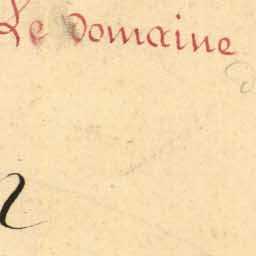 Le Domaine